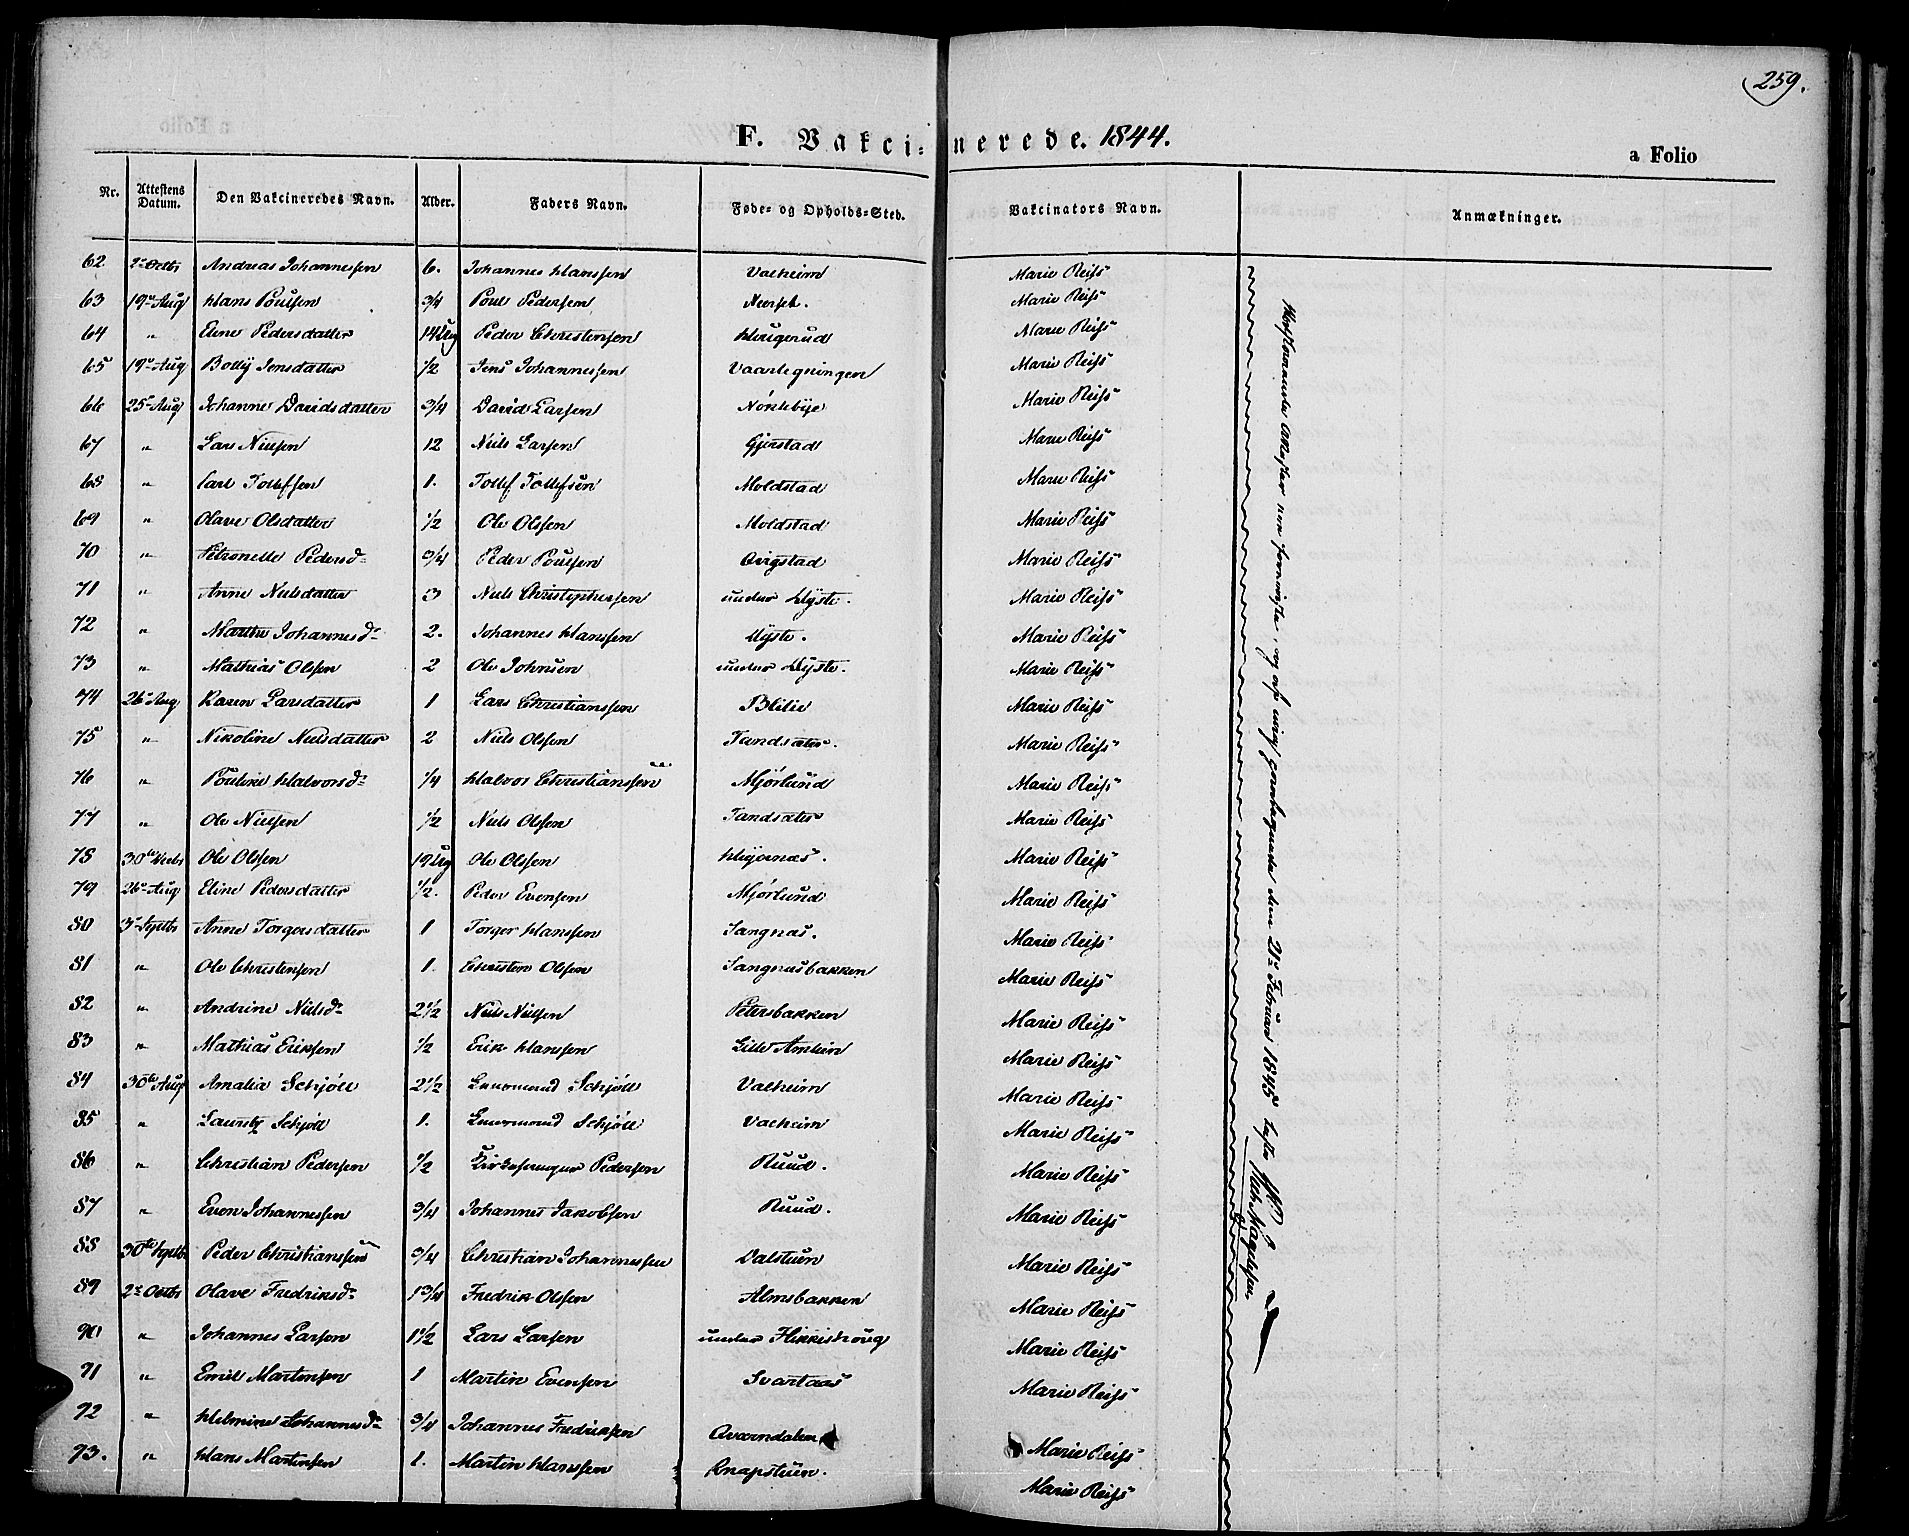 259.
F. Vakcinerede. 1844.
a Folio
Nr. Attestens Datum. Den Vakcineredes Navn. Alder. Faders Navn. Føde- og Opholds-Sted. Vakcinators Navn. Anmækninger.
62 2den Octbr Andreas Johannessen 6. Johannes Hanssen Valheim Marie Reiss
63 19de Aug Hans Poulsen 3/4 Poul Pedersen Nerset. Marie Reiss
64 " Eline Pedersdatter 14 Ug Peder Christensen Haugerud Marie Reiss
65 19de Aug Bolly Jensdatter 1/2 Jens Johannessen Vaartegningen Marie Reiss
66 25de Aug Johanne Davidsdatter 3/4 David Larsen Nøklebye Marie Reiss
67 " Lars Nielsen 12 Niels Larsen Gjerstad Marie Reiss
68 " Carl Tollefsen 1. Tollef Tollefsen Moldstad Marie Reiss
69 " Olave Olsdatter 1/2 Ole Olsen Moldstad Marie Reiss
70 " Petronelle Pedersd. 3/4 Peder Poulsen Qvigstad Marie Reiss
71 " Anne Nielsdatter 3 Niels Christophersen under Hyste. Marie Reiss
72 " Marthe Johannesd. 2. Johannes Hanssen Hyste. Marie Reiss
73 " Mathias Olsen 2 Ole Johnsen under Hyste. Marie Reiss
74 26de Aug Karen Larsdatter 1 Lars Christianssen Blilie Marie Reiss
75 " Nikoline Nielsdatter 2 Niels Olsen Tandsæter. Marie Reiss
76 " Pouline Halvorsd. 1/4 Halvor Christianssen Mjørlund Marie Reiss
77 " Ole Nielsen 1/2 Niels Olsen Tandsæter Marie Reiss
78 30te Ole Olsen 19 Ug Ole Olsen Marie Reiss
79 26de Aug Eline Pedersdatter 1/2. Peder Evensen Mjørlund Marie Reiss
80 3de Septbr Anne Torgersdatter 1 Torger Hanssen Sangnæs. Marie Reiss
81 " Ole Christensen 1. Christen Olsen Sangnæsbakken Marie Reiss
82 " Andrine Nielsd. 2 1/2 Niels Nielsen Petersbakken Marie Reiss
83 " Mathias Eriksen 1/2 Erik Hanssen Lille Amlien Marie Reiss
84 30te Aug Amalia Schjöll 2 1/2 Schjöll Valheim Marie Reiss
85 " Lauritz Schjöll 1. Schjöll Valheim Marie Reiss
86 " Christian Pedersen 1/2 Kirkesanger Pedersen Ruud. Marie Reiss
87 " Even Johannessen 3/4 Johannes Jakobsen Ruud. Marie Reiss
88 30te Septbr Peder Christianssen 3/4 Christian Johannessen Dalstuen Marie Reiss
89 2den Octbr Olave Fredriksd. 1 3/4 Fredrik Olsen Almsbakken Marie Reiss
90 " Johannes Larsen 1 1/2 Lars Larsen under Marie Reiss
91 " Emil Martinsen 1 Martin Evensen Svartaas Marie Reiss
92 " Helmine Johannesd. 3/4 Johannes Fredriksen Qværndalen Marie Reiss
93. " Hans Martinsen 1. Martin Hanssen Knapstuen. Marie Reiss
den 21de Februar 1845